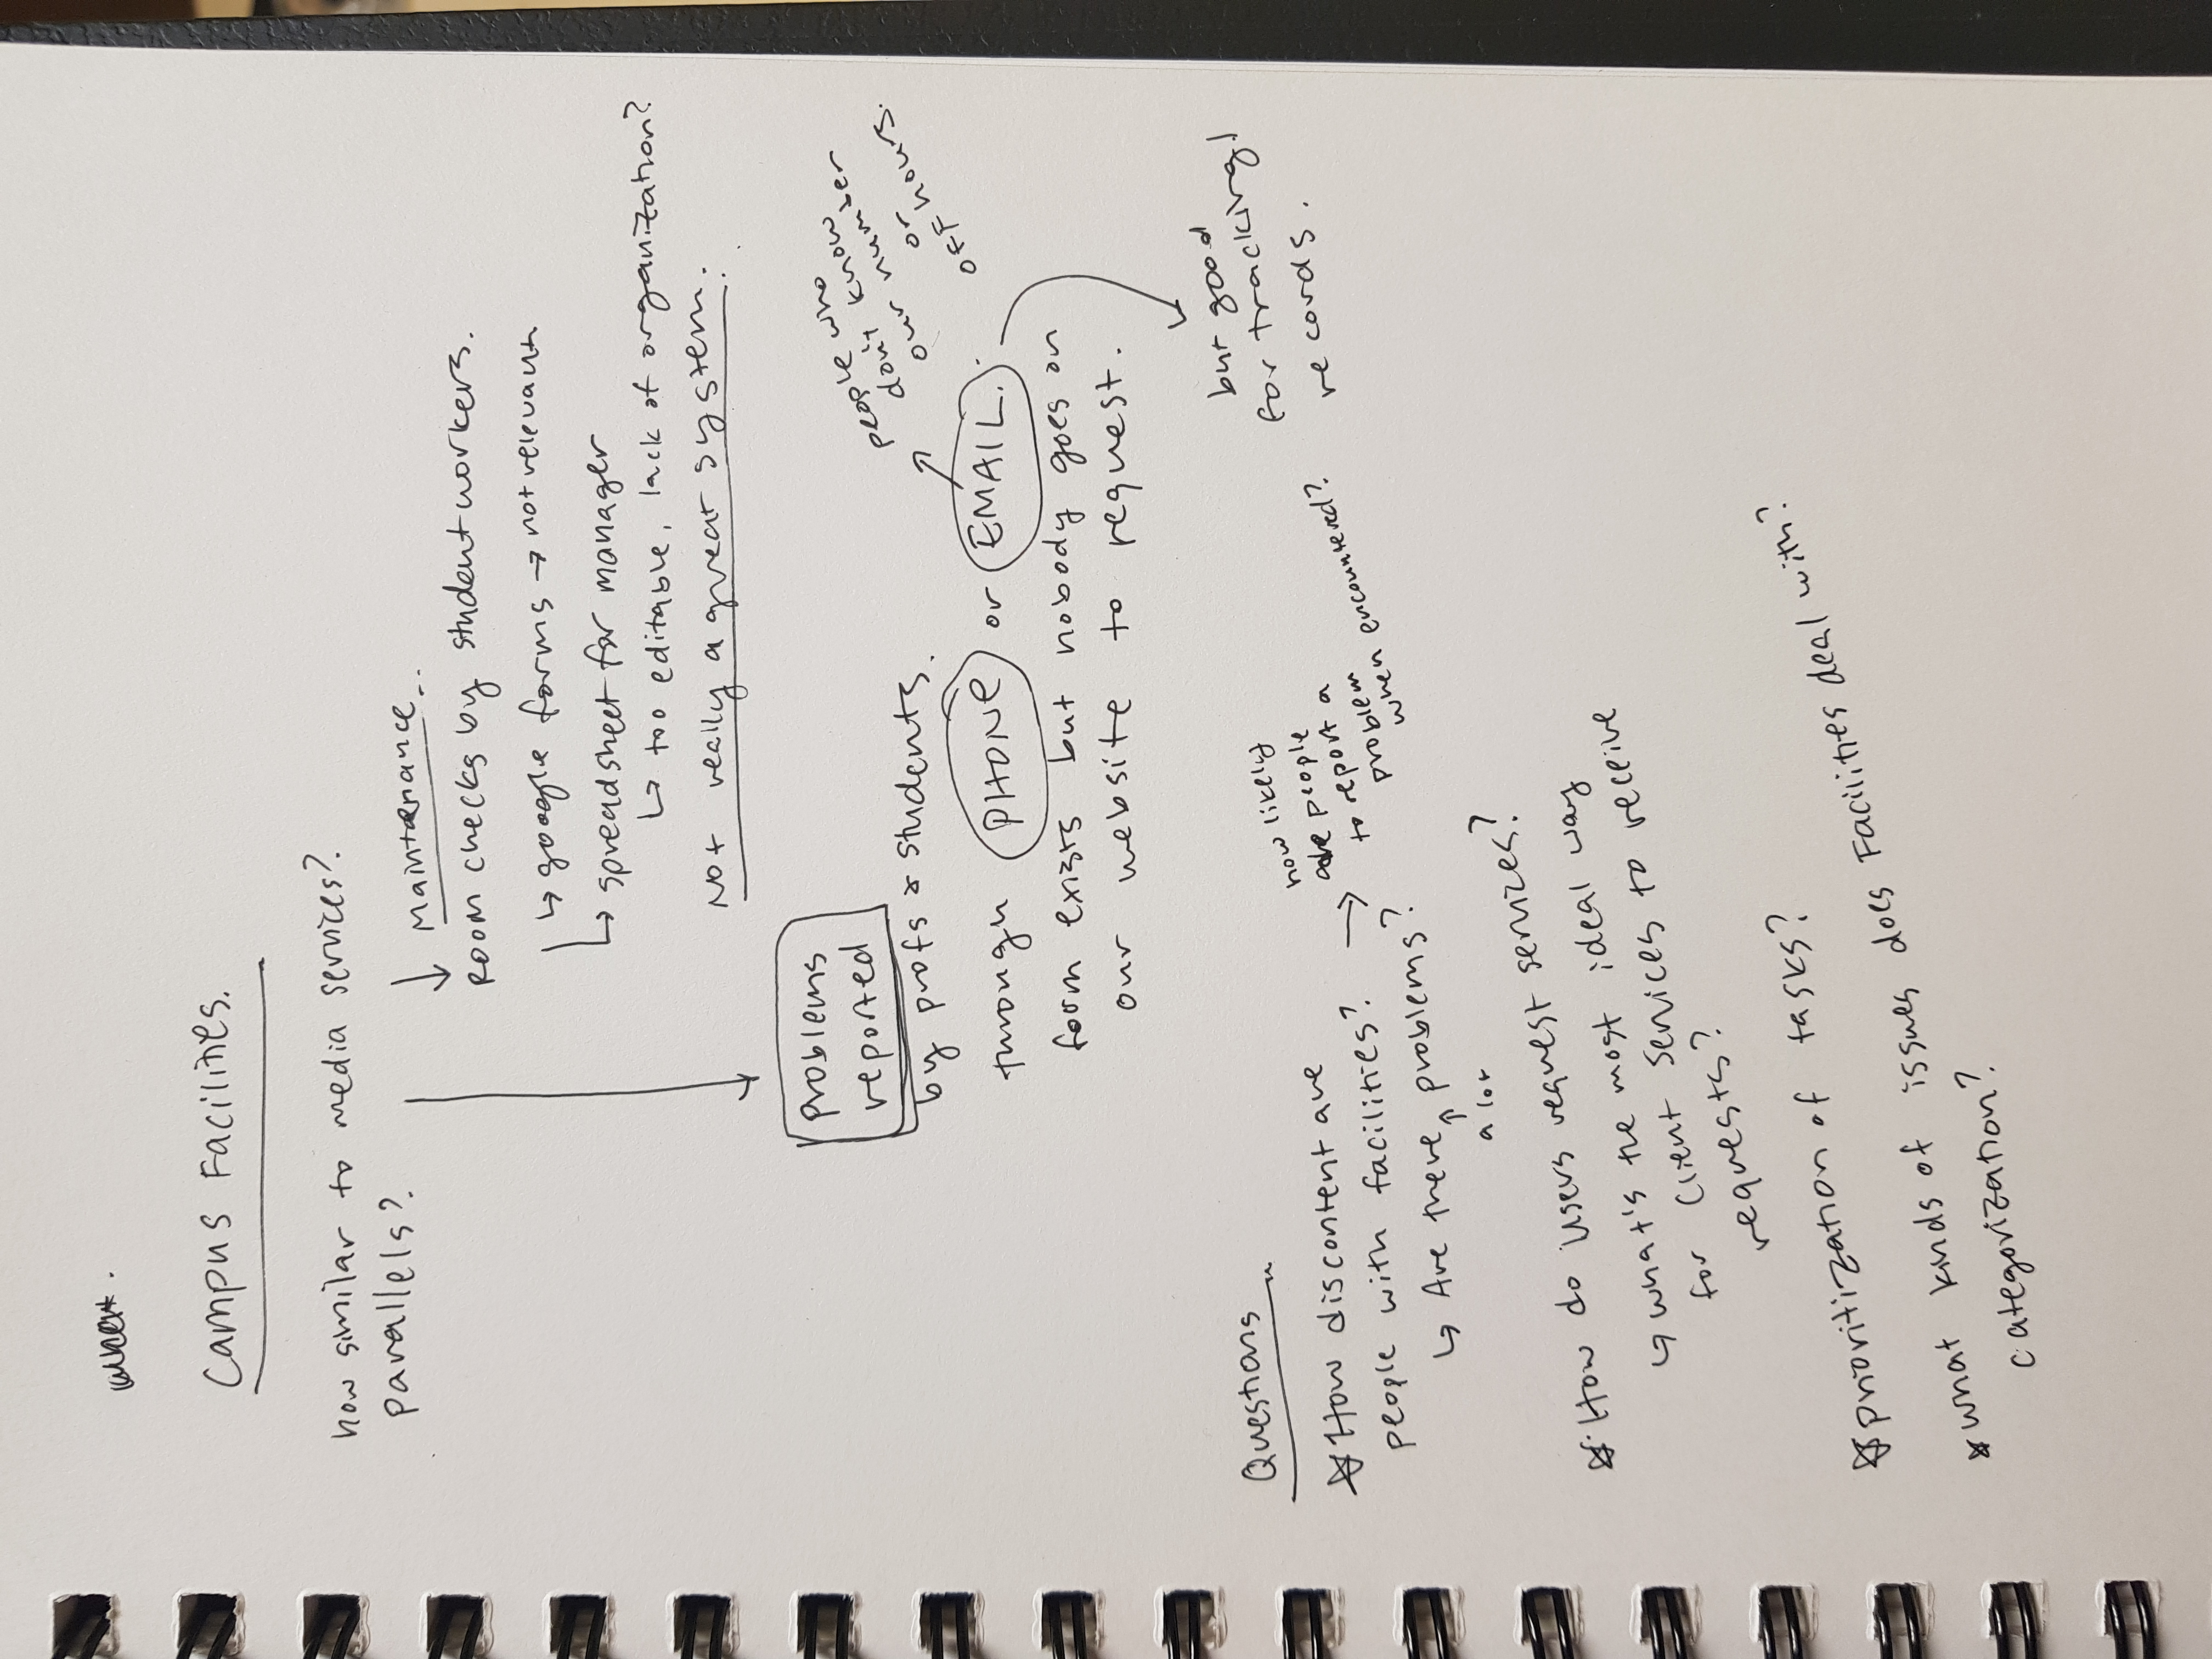 Campus Facilities.
how similar to media services?
parallels?
↓ Maintenance..
Room checks by student workers.
↳ google forms → not relevant
↳ spreadsheet for manager
↳ too editable, lack of organization?
Not really a great system.
problems
reported
by profs & students.
through PHONE or EMAIL.
people who
don't know
our number
or
off hours.
form exists but nobody goes on
our website to request.
but good
for tracking/
records.
Questions
☆ How discontent are
people with facilities?
→ how likely
are people
to report a
problem
when encountered?
↳ Are there problems?
↑
a lot
☆ How do users request services?
↳ what's the most ideal way
for Client Services to receive
requests?
☆ prioritization of tasks?
☆ what kinds of issues does Facilities deal with?
categorization?